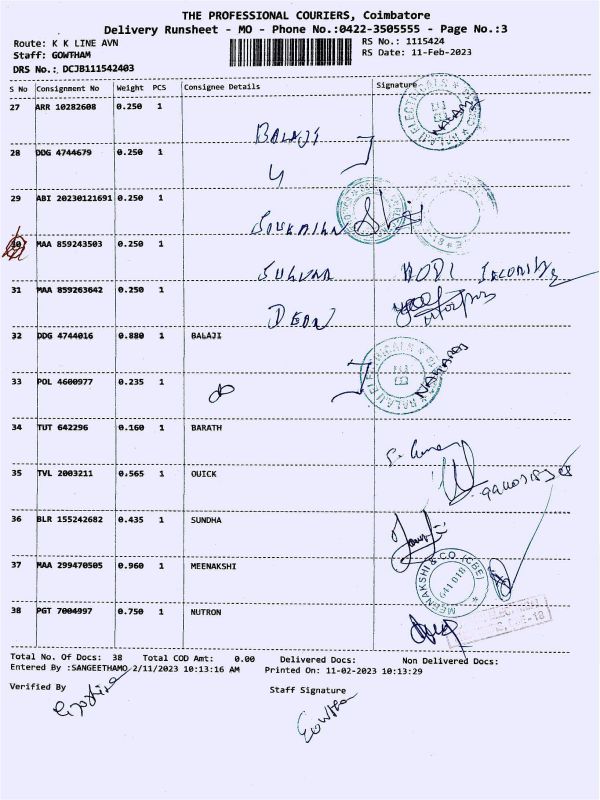 THE PROFESSIONAL COURIERS, Coimbatore
Delivery Runsheet - MO - Phone No.:0422-3505555 - Page No.:3
Route: K K LINE AVN
RS No.: 1115424
Staff: GOWTHAM
RS Date: 11-Feb-2023
DRS No.: DCJB111542403
S No Consignment No Weight PCS Consignee Details Signature
27 ARR 10282608 0.250 1
BALAJI
28 DDG 4744679 0.250 1
29 ABI 20230121691 0.250 1
30 MAA 859243503 0.250 1
31 MAA 859263642 0.250 1
DEAN
32 DDG 4744016 0.880 1 BALAJI
33 POL 4600977 0.235 1
34 TUT 642296 0.160 1 BARATH
35 TVL 2003211 0.565 1 OUICK
36 BLR 155242682 0.435 1 SUNDHA
37 MAA 299470505 0.960 1 MEENAKSHI
MEENAKSHI & CO (CBE)
641 018
38 PGT 7004997 0.750 1 NUTRON
Total No. Of Docs: 38 Total COD Amt: 0.00 Delivered Docs: Non Delivered Docs:
Entered By :SANGEETHAMO 2/11/2023 10:13:16 AM Printed On: 11-02-2023 10:13:29
Verified By
Staff Signature
Gowtham